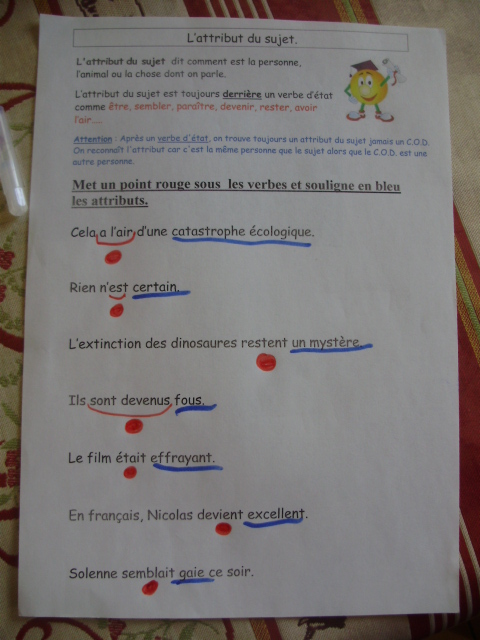 L'attribut du sujet.
L'attribut du sujet dit comment est la personne,
l'animal ou la chose dont on parle.
L'attribut du sujet est toujours derrière un verbe d'état
comme être, sembler, paraître, devenir, rester, avoir
l'air....
Attention : Après un verbe d'état, on trouve toujours un attribut du sujet jamais un C.O.D.
On reconnaît l'attribut car c'est la même personne que le sujet alors que le C.O.D. est une
autre personne.
Met un point rouge sous les verbes et souligne en bleu
les attributs.
Cela a l'air d'une catastrophe écologique.
Rien n'est certain.
L'extinction des dinosaures restent un mystère.
Ils sont devenus fous.
Le film était effrayant.
En français, Nicolas devient excellent.
Solenne semblait gaie ce soir.